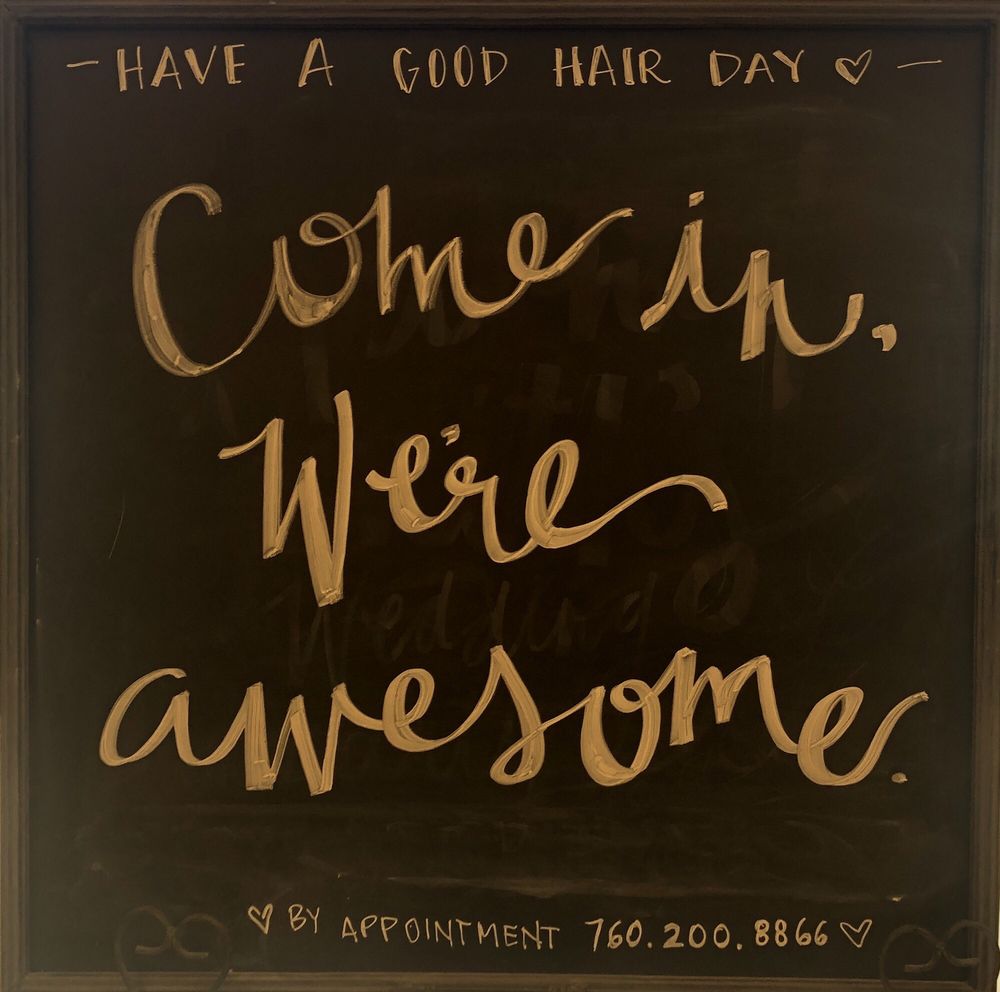 - HAVE A GOOD HAIR DAY ♡ -
Come in,
We're
awesome.
♡ BY APPOINTMENT 760.200.8866 ♡